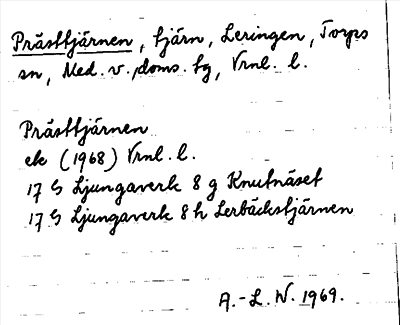 Prästtjärnen, tjärn, Leringen, Torps
sn, Med. v. doms. tg, Vrnl. l.
Prästtjärnen
ek (1968) Vrnl. l.
17 G Ljungaverk 8 g Knutnäset
17 G Ljungaverk 8 h Lerbäckstjärnen
A.-L. W. 1969.